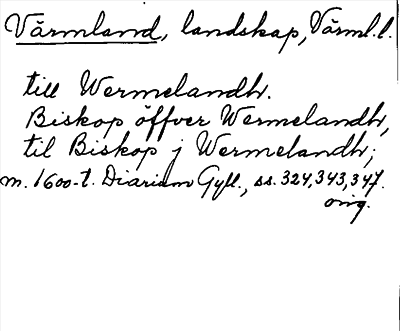 Värmland, landskap, Värml.l.
till Wermelandh.
Biskop öffver Wermelandh,
til Biskop j Wermelandh;
m. 1600-t. Diarium Gyll., ss. 324, 343, 347.
orig.